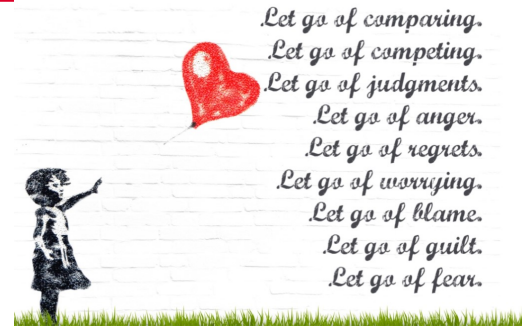 Let go of comparing.
Let go of competing.
Let go of judgments.
Let go of anger.
Let go of regrets.
Let go of worrying.
Let go of blame.
Let go of guilt.
Let go of fear.